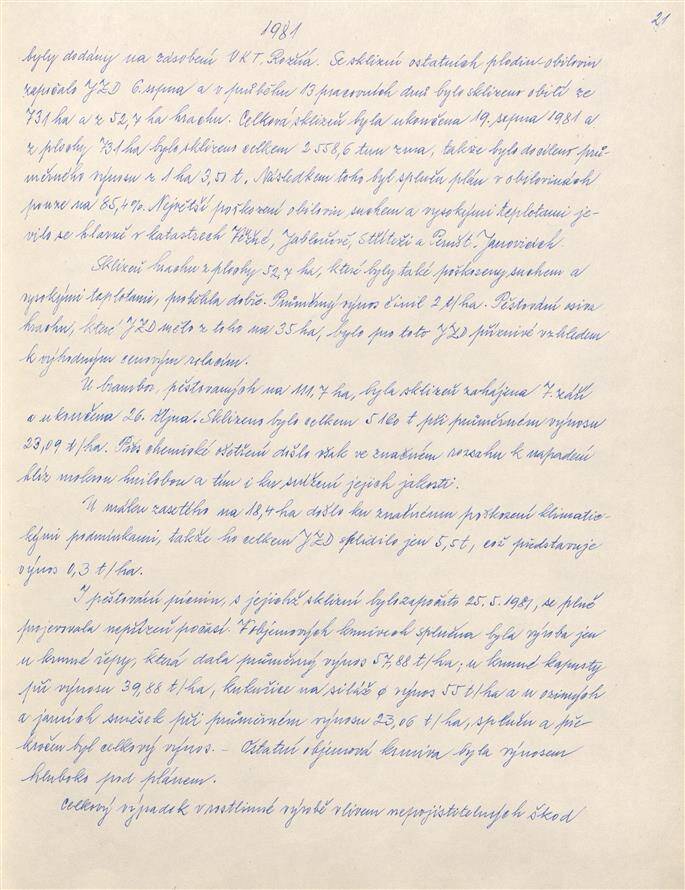 21
1981
byly dodány na zásobení VKT. Rožná. Se sklizní ostatních plodin-obilovin
započalo JZD 6. srpna a v průběhu 13 pracovních dnů bylo sklizeno obilí ze
731 ha a z 52,7 ha hrachu. Celková sklizeň byla ukončena 19. srpna 1981 a
z plochy 731 ha bylo sklizeno celkem 2558,6 tun zrna, takže bylo docíleno prů-
měrného výnosu z 1 ha 3,50 t. Následkem toho byl splněn plán v obilovinách
pouze na 85,4%. Největší poškození obilovin suchem a vysokými teplotami je-
vilo se hlavně v katastrech Věžné, Jabloňově, Stříteži a Pernšt. Janovicích.
Sklizeň hrachu z plochy 52,7 ha, které byly také poškozeny suchem a
vysokými teplotami, proběhla dobře. Průměrný výnos činil 2 t/ha. Pěstování osiva
hrachu, které JZD mělo z toho na 35 ha, bylo pro toto JZD příznivé vzhledem
k výhodným cenovým relacím.
U brambor, pěstovaných na 111,7 ha, byla sklizeň zahájena 7. září
a ukončena 26. října. Sklizeno bylo celkem 5160 t při průměrném výnosu
23,09 t/ha. Přes chemické ošetření došlo však ve značném rozsahu k napadení
hlíz mokrou hnilobou a tím i ku snížení jejich jakosti.
U máku zasetého na 18,4 ha došlo ku značnému poškození klimatic-
kými podmínkami, takže ho celkem JZD sklidilo jen 5,5 t, což představuje
výnos 0,3 t/ha.
I pěstování pícnin, s jejichž sklizní bylo započato 25.5.1981, se plně
projevovala nepřízeň počasí. V objemových krmivech splněna byla výroba jen
u krmné řepy, která dala průměrný výnos 57,88 t/ha; u krmné kapusty
při výnosu 39,88 t/ha, kukuřice na siláž ø výnos 55 t/ha a u ozimých
a jarních směsek při průměrném výnosu 23,06 t/ha, splněn a pře-
kročen byl celkový výnos. - Ostatní objemová krmiva byla výnosem
hluboko pod plánem.
Celkový výpadek v rostlinné výrobě vlivem nepojistitelných škod